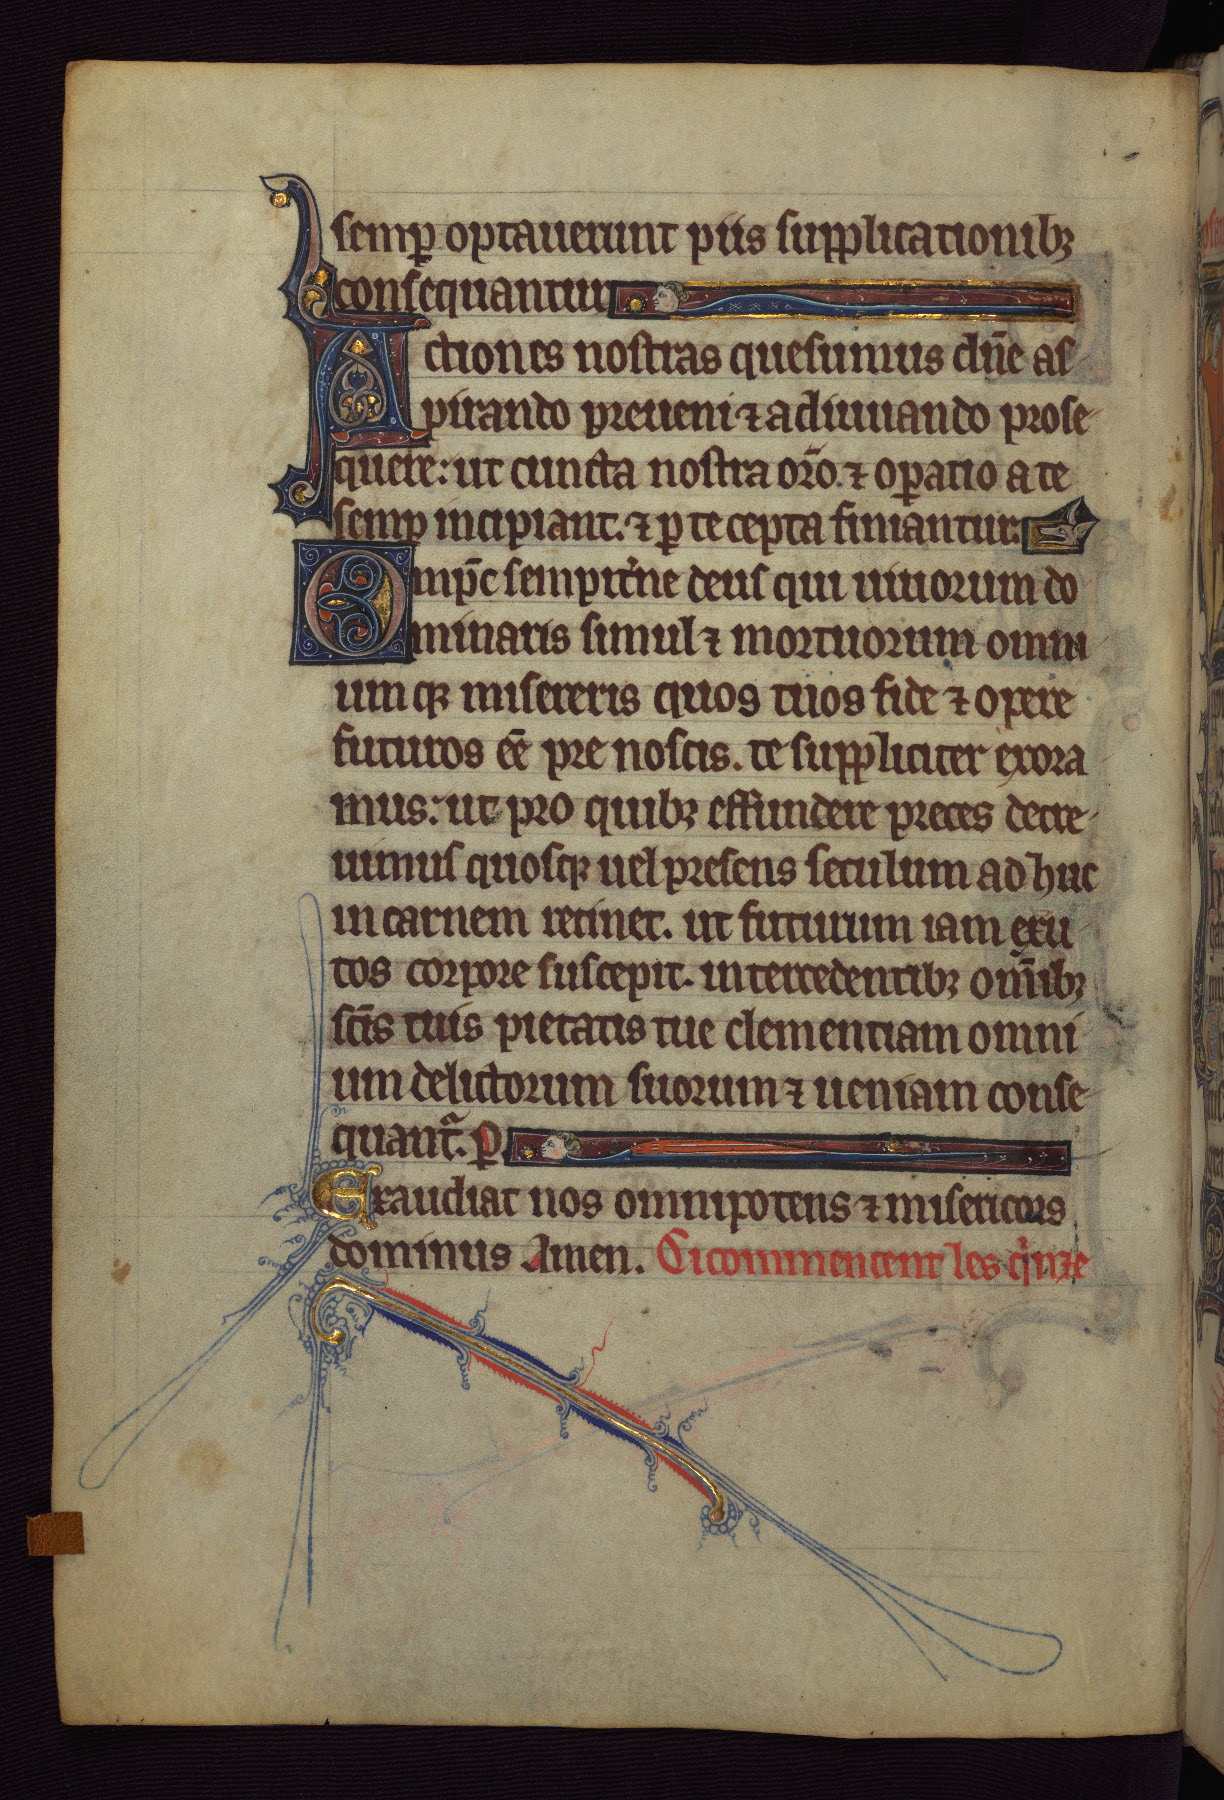 semp̱ optauerunt piis supplicationibꝫ
consequantur
Actiones nostras quesumus dn̄e as
pirando preueni ⁊ adiuuando prose-
quere: ut cuncta nostra or̄o. ⁊ oꝑatio a te
semꝑ incipiant. ⁊ ꝑ te cepta finiantur.
Omp̄c sempit̾ne deus qui uiuorum do
minaris simul ⁊ mortuorum omni
umqꝫ misereris quos tuos fide ⁊ opere
futuros ee̅ pre noscis. te suppliciter exora
mus: ut pro quibꝫ effundere preces decre-
uimus quosqꝫ uel presens seculum ad huc
in carnem retinet. ut futurum iam exu-
tos corpore suscepit. intercedentibꝫ om̄ibꝫ
sc̄is tuis pietatis tue clementiam omni
um delictorum suorum ⁊ ueniam conse-
quant᷑. ꝑ
Exaudiat nos omnipotens ⁊ misericors
dominus Amen. Ci commencent les qͥnze